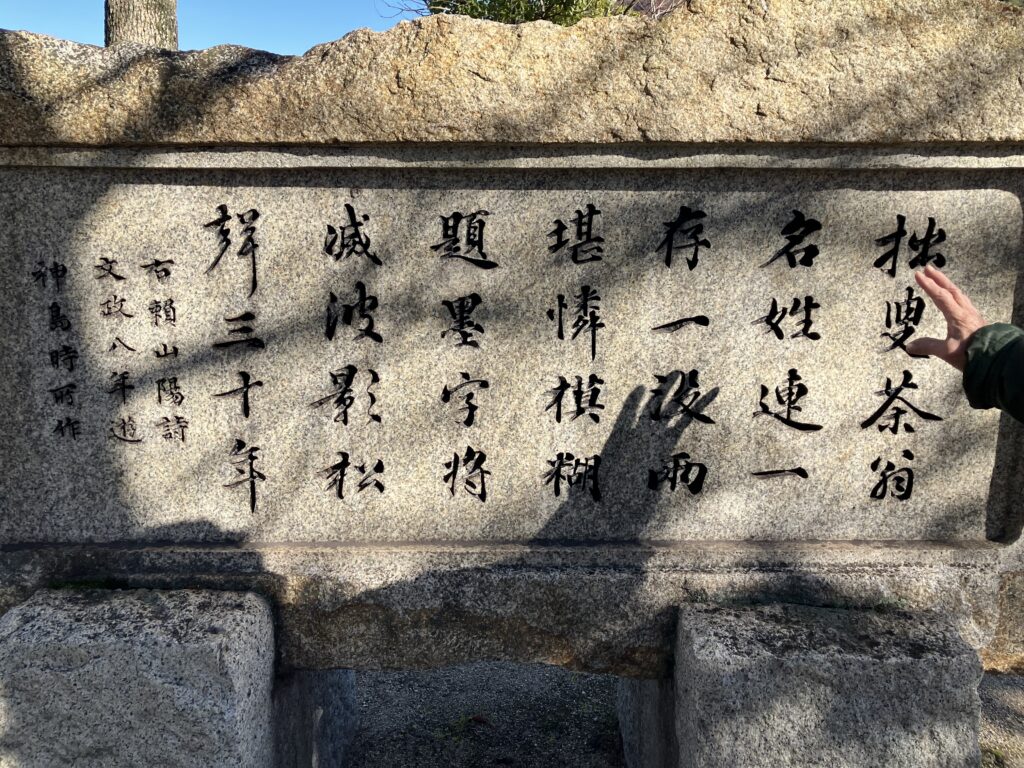 拙叟茶翁
名姓連一
存一没両
堪憐模糊
題墨字将
滅波影松
声三十年
右頼山陽詩
文政八年遊
神島時所作